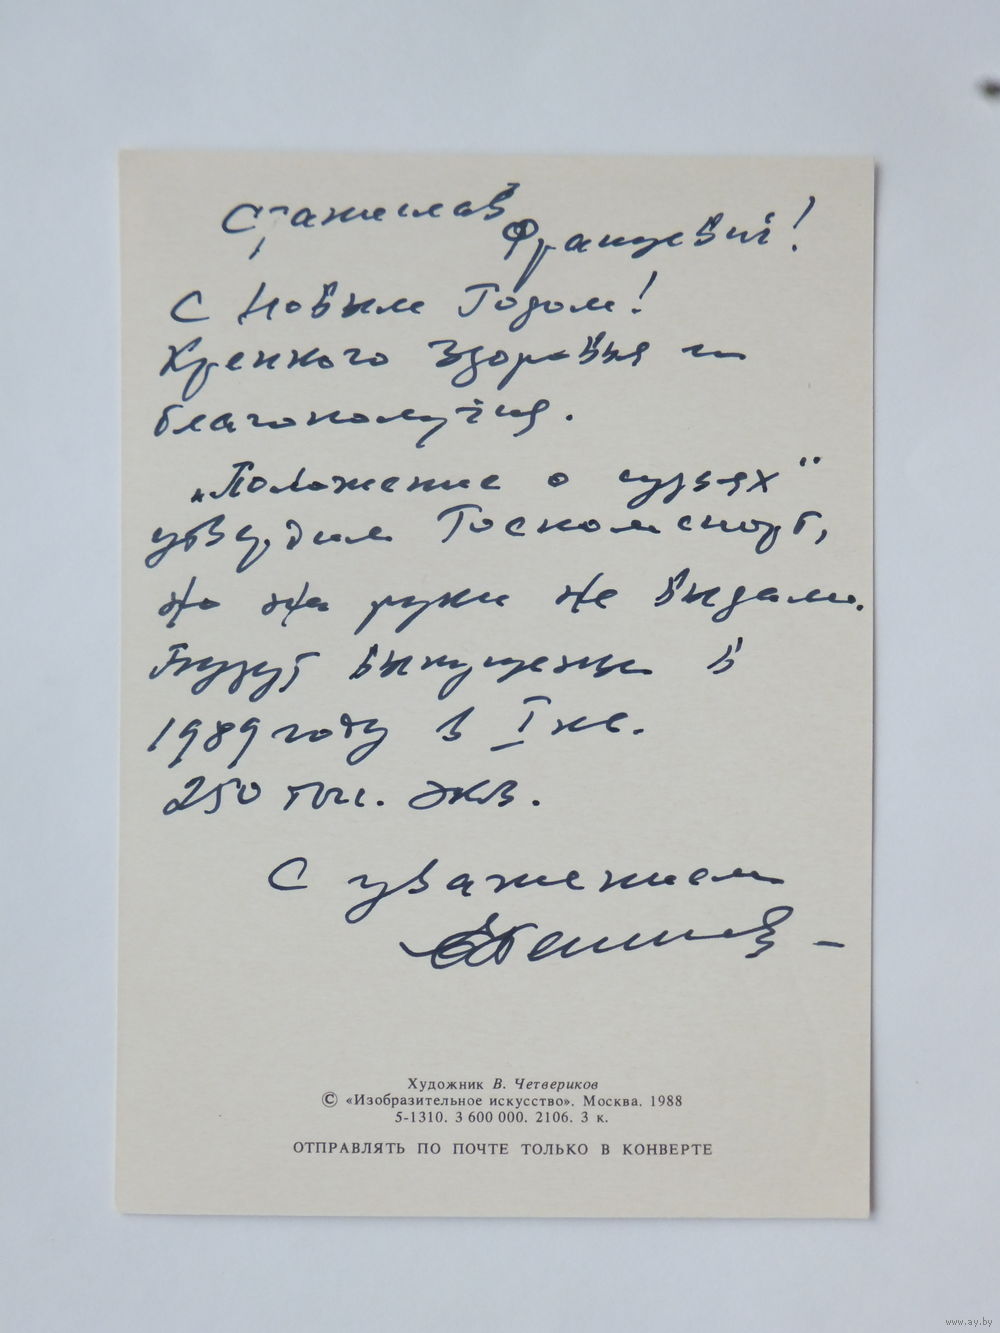 Станислав
Францевич!
С Новым Годом!
Крепкого здоровья и
благополучия.
„Положение о судьях"
утвердил Госкомспорт,
но на руки не выдали.
Будут выпущены в
1989 году в I кв.
250 тыс. экз.
С уважением
Художник В. Четвериков
© «Изобразительное искусство». Москва. 1988
5-1310. 3 600 000. 2106. 3 к.
ОТПРАВЛЯТЬ ПО ПОЧТЕ ТОЛЬКО В КОНВЕРТЕ
www.ay.by